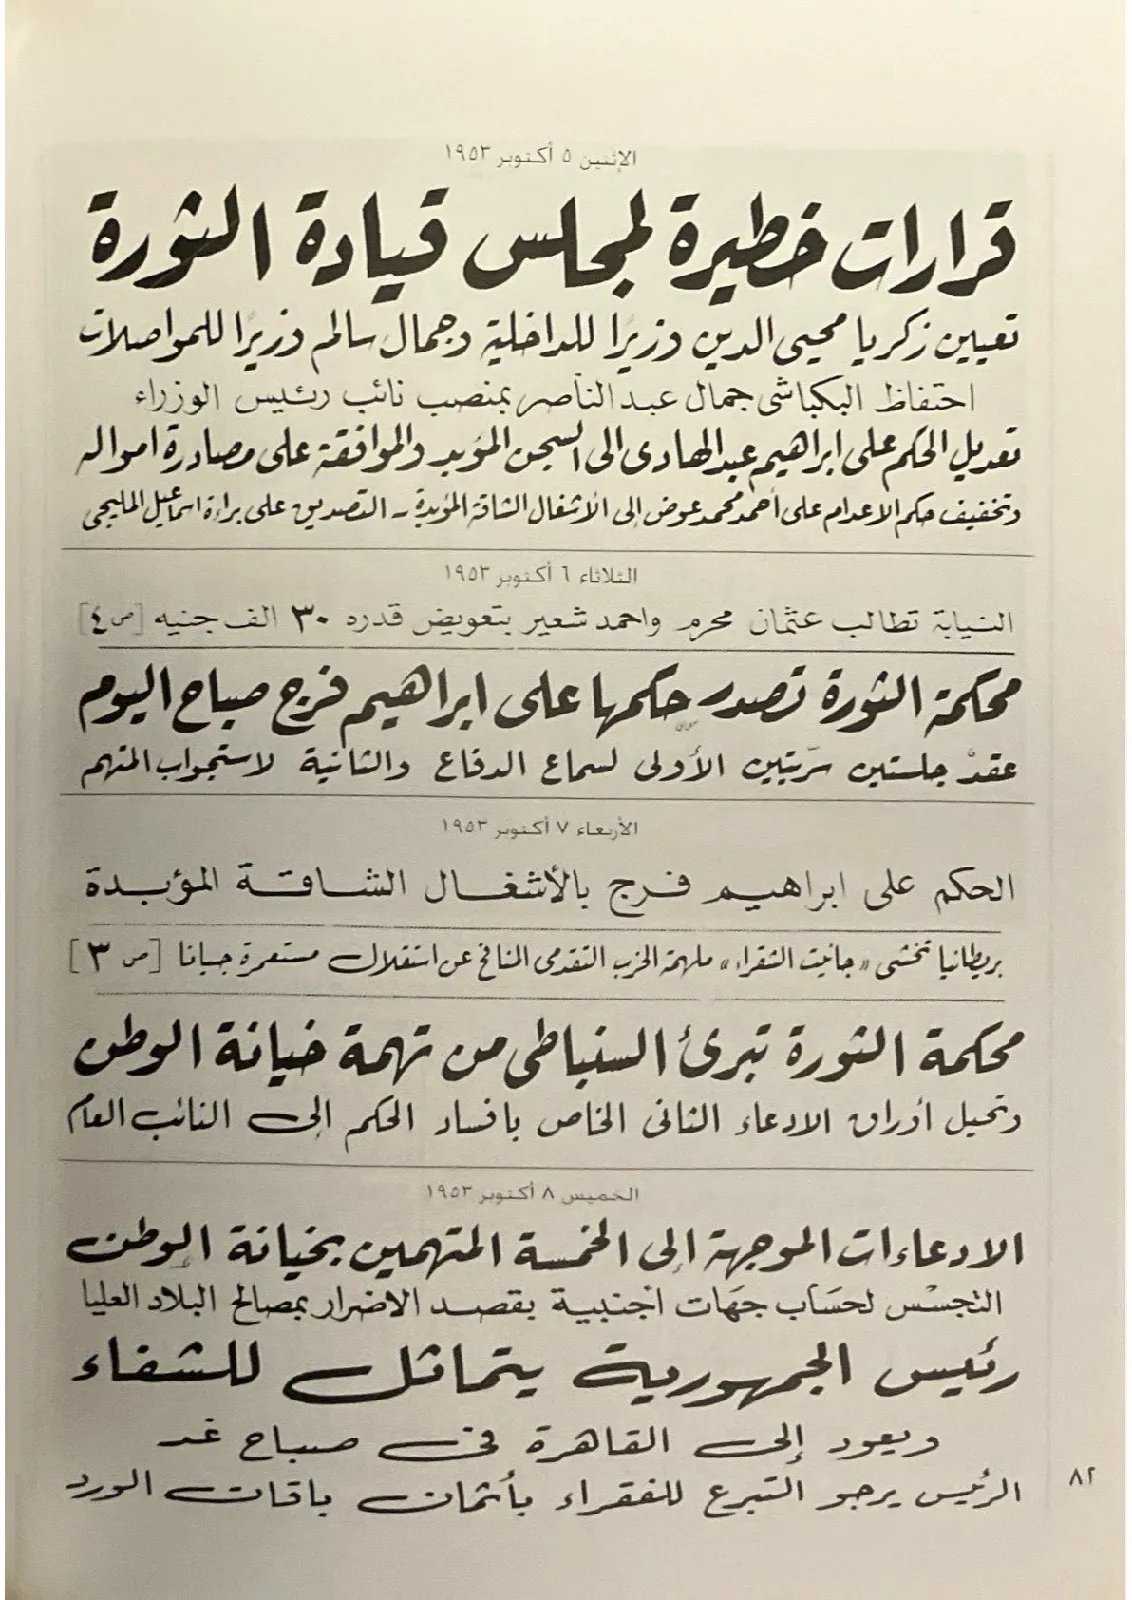 الإثنين ٥ أكتوبر ١٩٥٣
قرارات خطيرة لمجلس قيادة الثورة
تعيين زكريا محيى الدين وزيرًا للداخلية وجمال سالم وزيرًا للمواصلات
احتفاظ البكباشى جمال عبد الناصر بمنصب نائب رئيس الوزراء
تعديل الحكم على ابراهيم عبد الهادى الى السجن المؤبد والموافقة على مصادرة امواله
وتخفيف حكم الاعدام على أحمد محمد عوض إلى الأشغال الشاقة المؤبدة - التصديق على براءة اسماعيل المليجى
الثلاثاء ٦ أكتوبر ١٩٥٣
النيابة تطالب عثمان محرم واحمد شعير بتعويض قدره ٣٠ الف جنيه [ص ٤]
محكمة الثورة تصدر حكمها على ابراهيم فرج صباح اليوم
عقد جلستين سرّيتين الأولى لسماع الدفاع والثانية لاستجواب المتهم
الأربعاء ٧ أكتوبر ١٩٥٣
الحكم على ابراهيم فرج بالأشغال الشاقة المؤبدة
بريطانيا تخشى «جانيت الشقراء» ملهمة الحزب التقدمى النافخ عن استقلال مستعمرة جيانا [ص ٣]
محكمة الثورة تبرئ السنباطى من تهمة خيانة الوطن
وتحيل أوراق الادعاء الثانى الخاص بافساد الحكم إلى النائب العام
الخميس ٨ أكتوبر ١٩٥٣
الادعاءات الموجهة إلى الخمسة المتهمين بخيانة الوطن
التجسّس لحسَاب جهَات اجنبية بقصد الاضرار بمصالح البلاد العليا
رئيس الجمهورية يتماثل للشفاء
ويعود إلى القاهرة فى صباح غد
الرئيس يرجو التبرع للفقراء بأثمان باقات الورد
٨٢